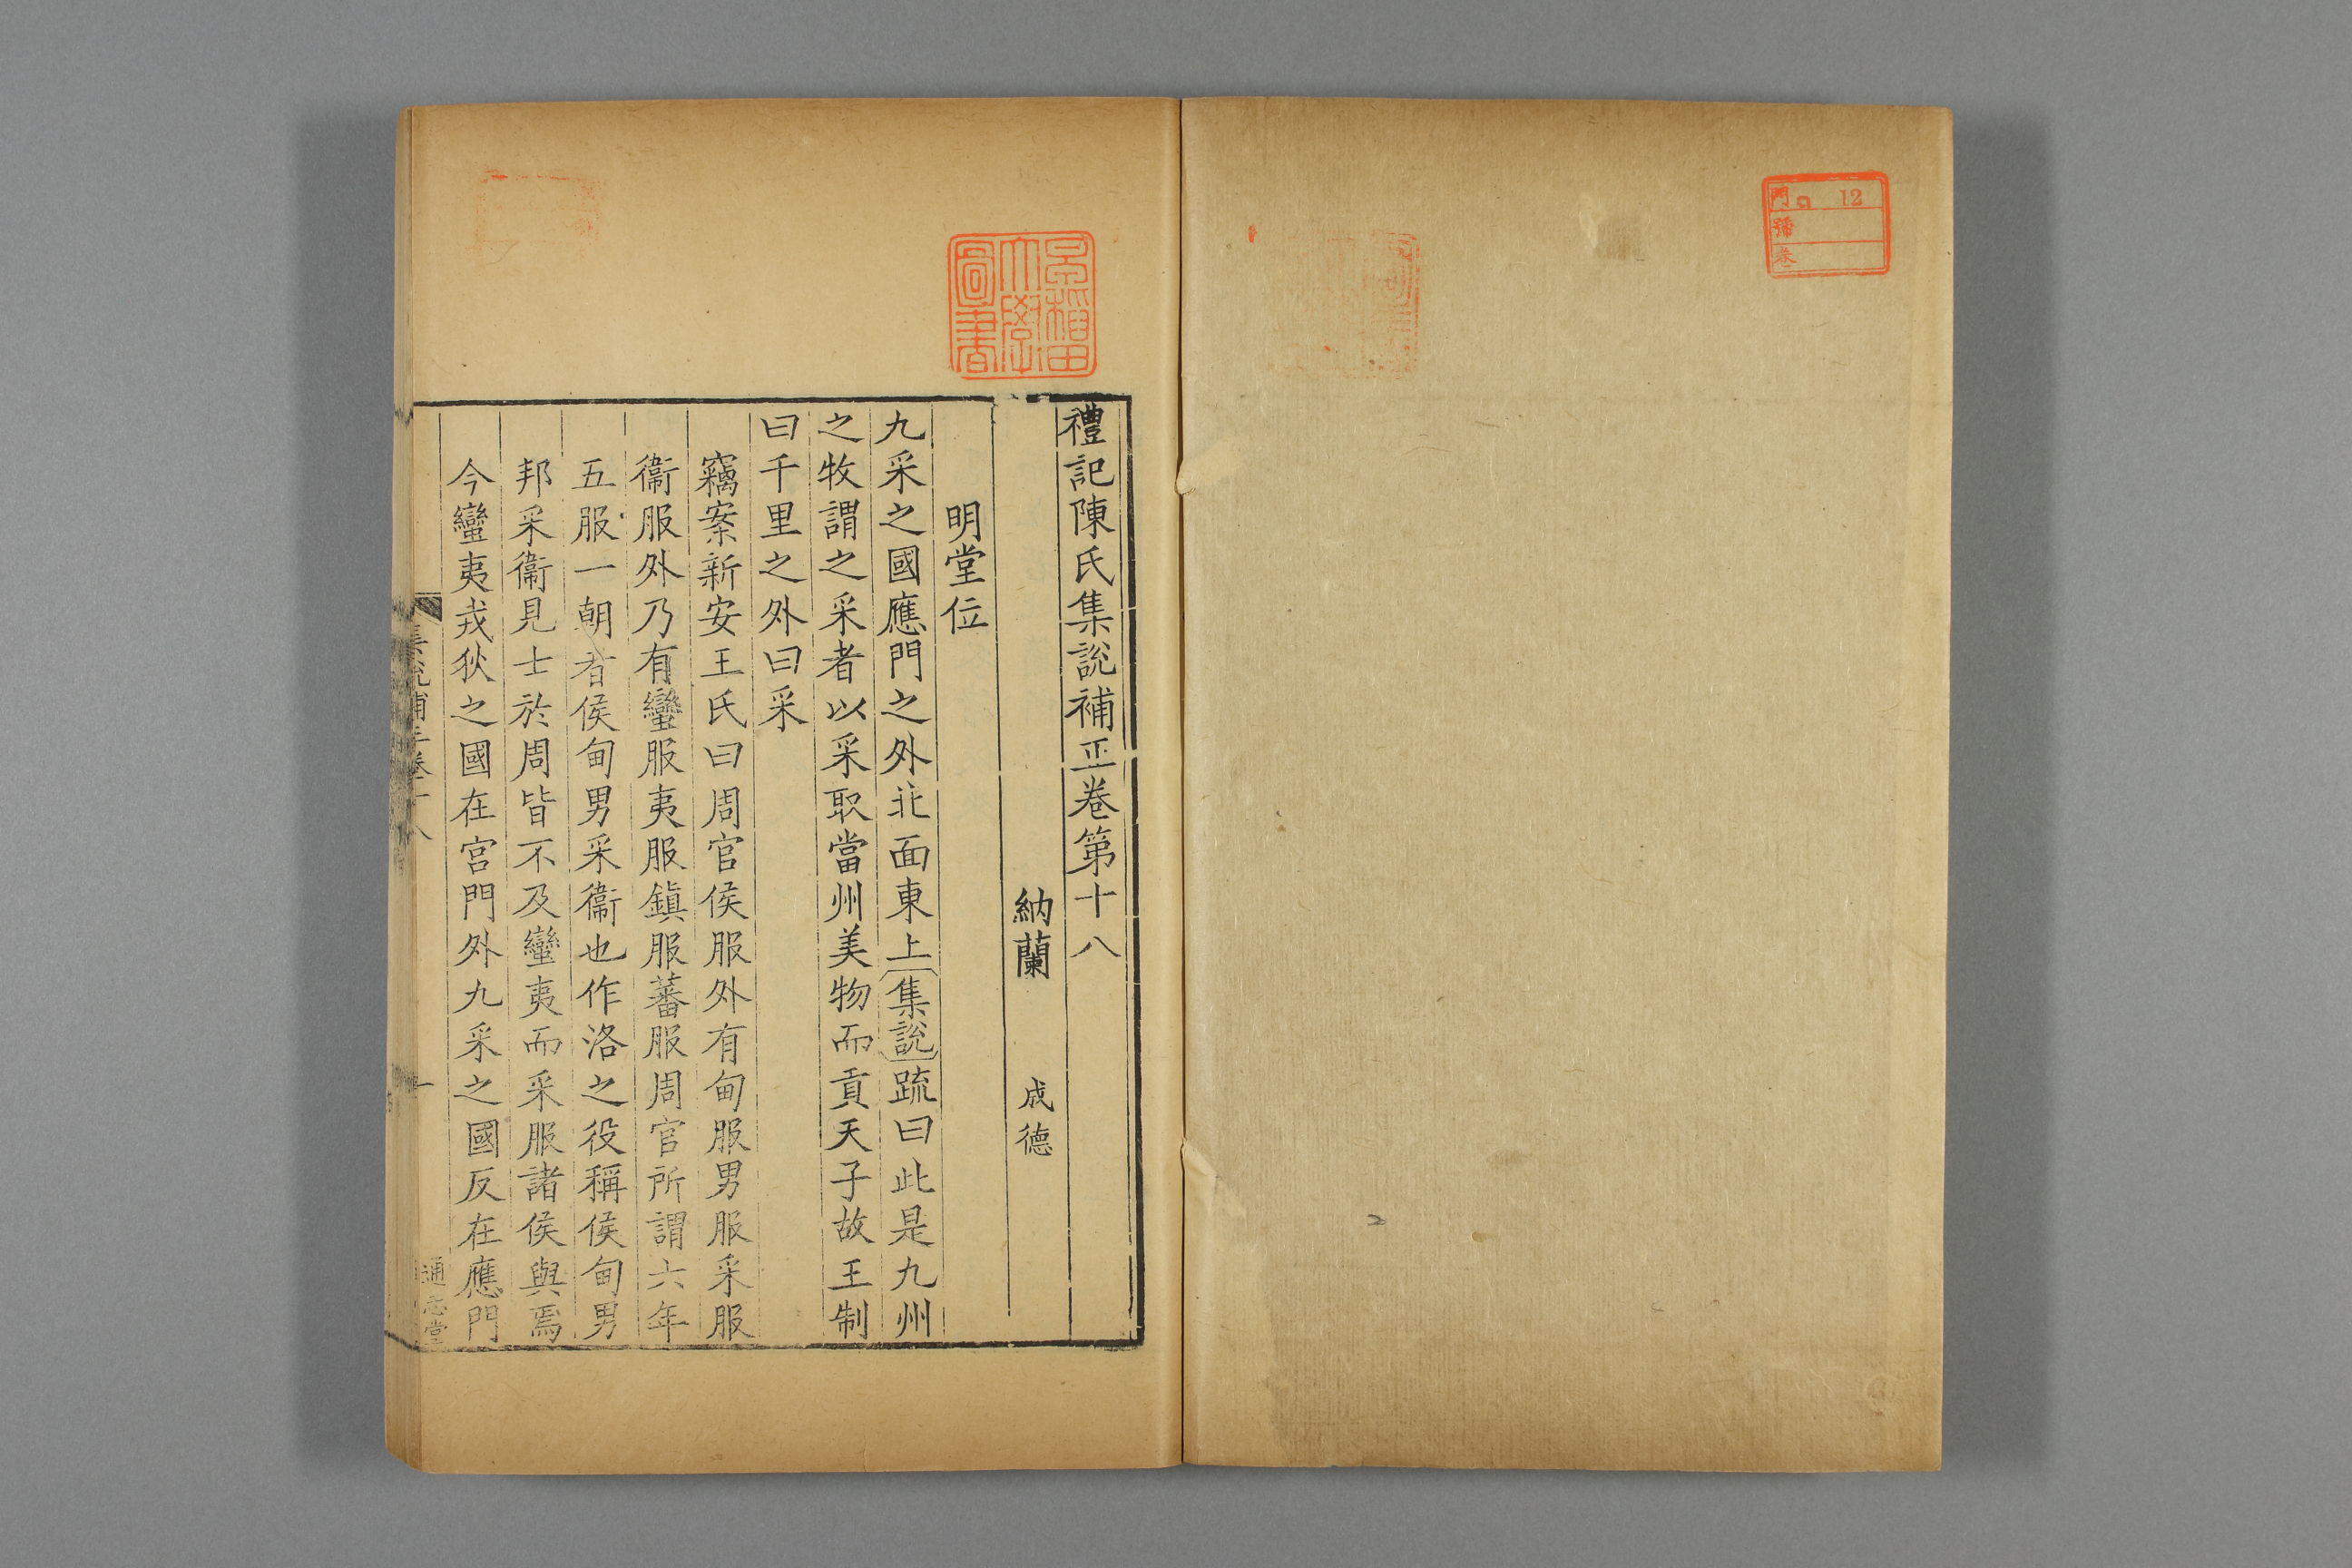 門 口 12
號
卷
早稲田
大學
圖書
禮記陳氏集說補正卷第十八
納蘭 成德
明堂位
九采之國應門之外北面東上〔集說〕疏曰此是九州
之牧謂之采者以采取當州美物而貢天子故王制
曰千里之外曰采
竊案新安王氏曰周官侯服外有甸服男服采服
衞服外乃有蠻服夷服鎮服蕃服周官所謂六年
五服一朝者侯甸男采衞也作洛之役稱侯甸男
邦采衞見士於周皆不及蠻夷而采服諸侯與焉
今蠻夷戎狄之國在宮門外九采之國反在應門
集說補正卷十八
一
通志堂